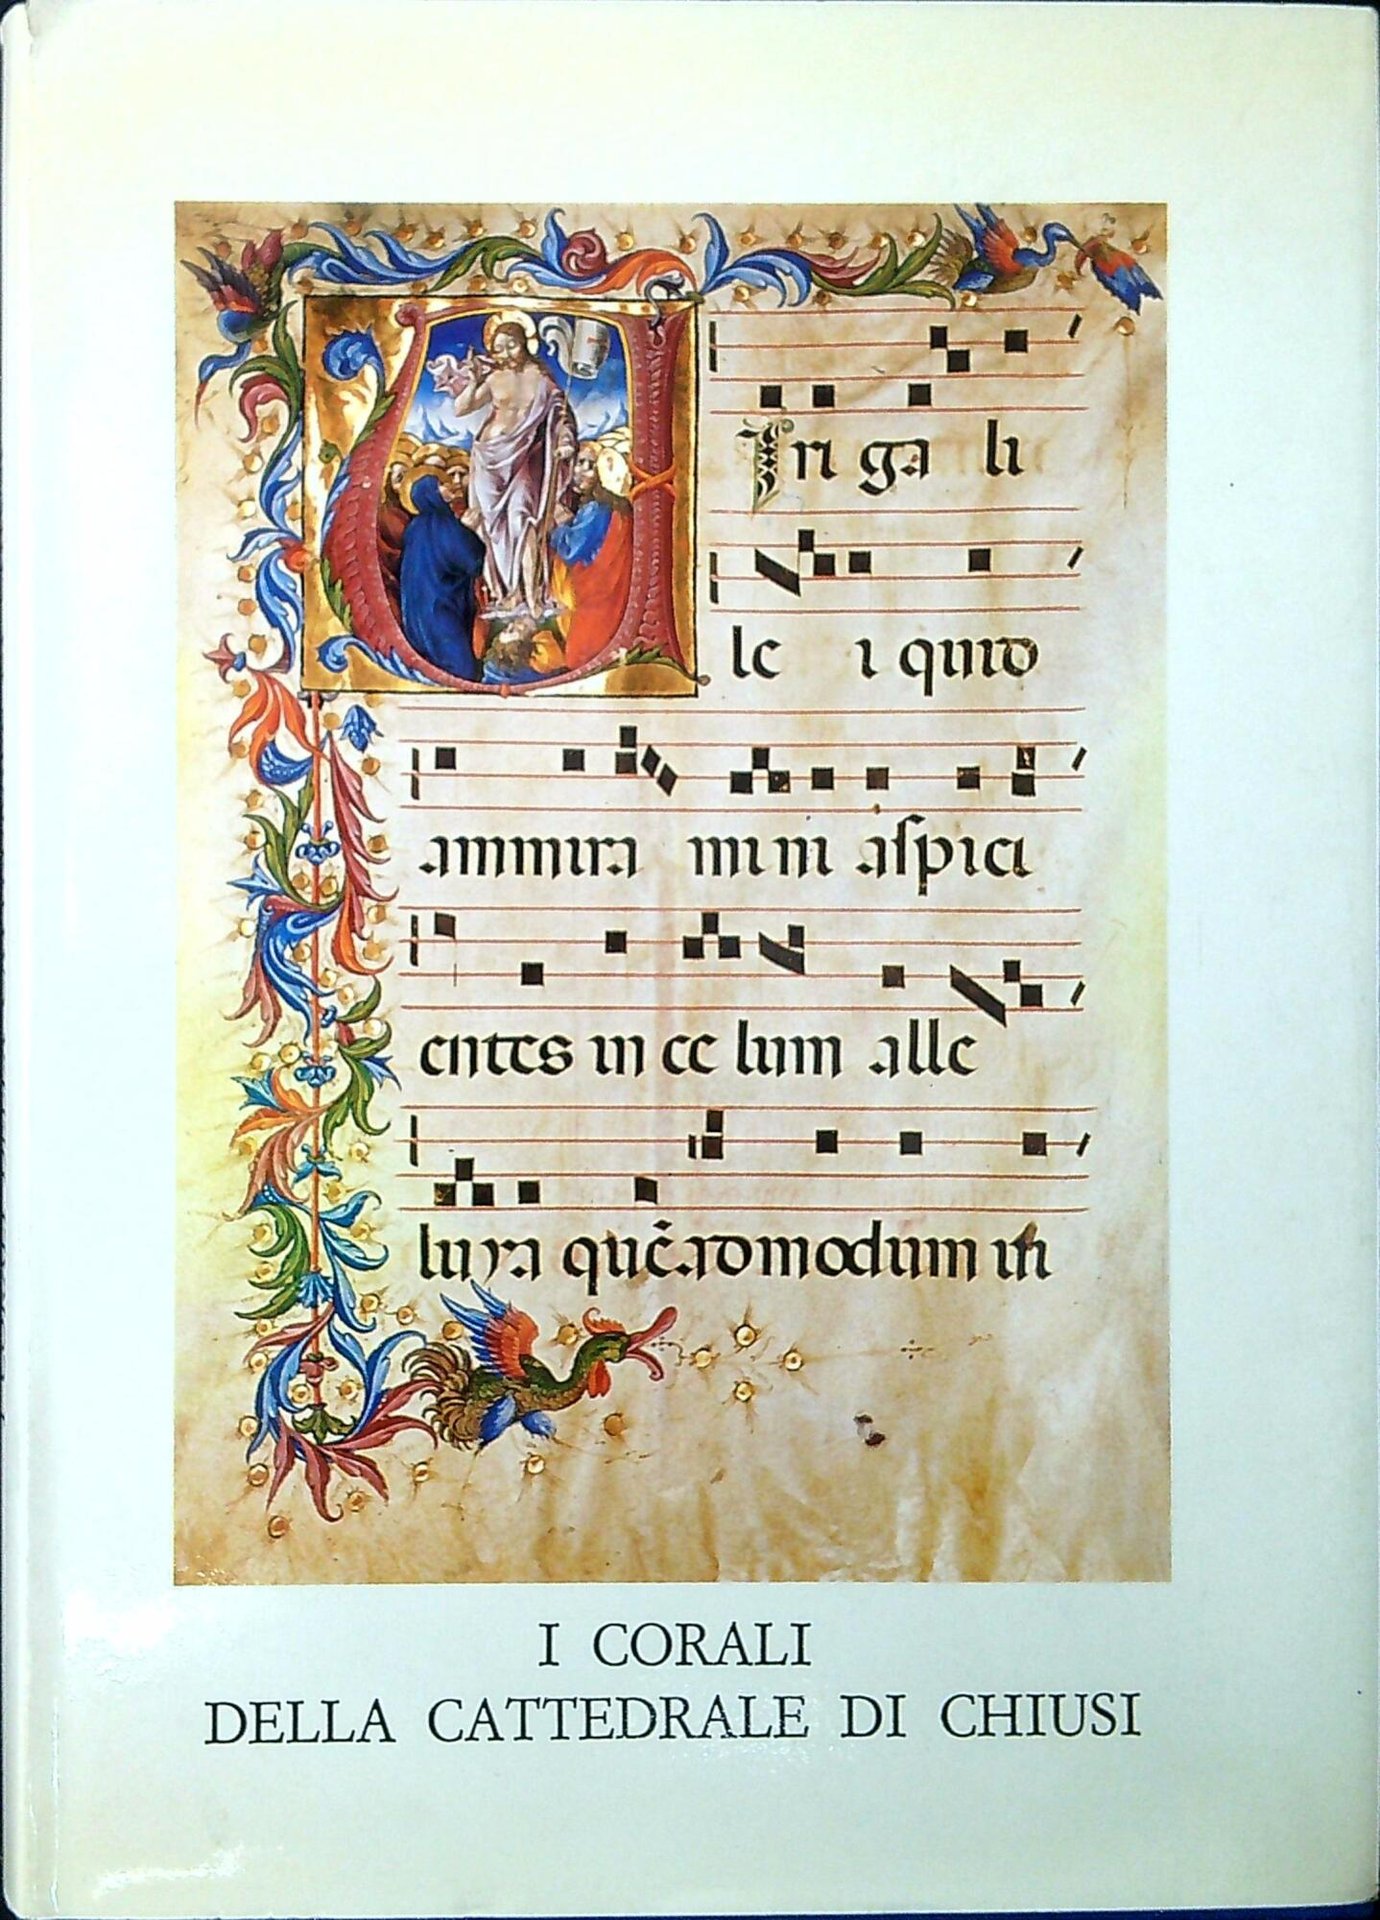 Viri gali
le i quid
ammira mini aspici
entes in ce lum alle
luya quēadmodum in
I CORALI
DELLA CATTEDRALE DI CHIUSI